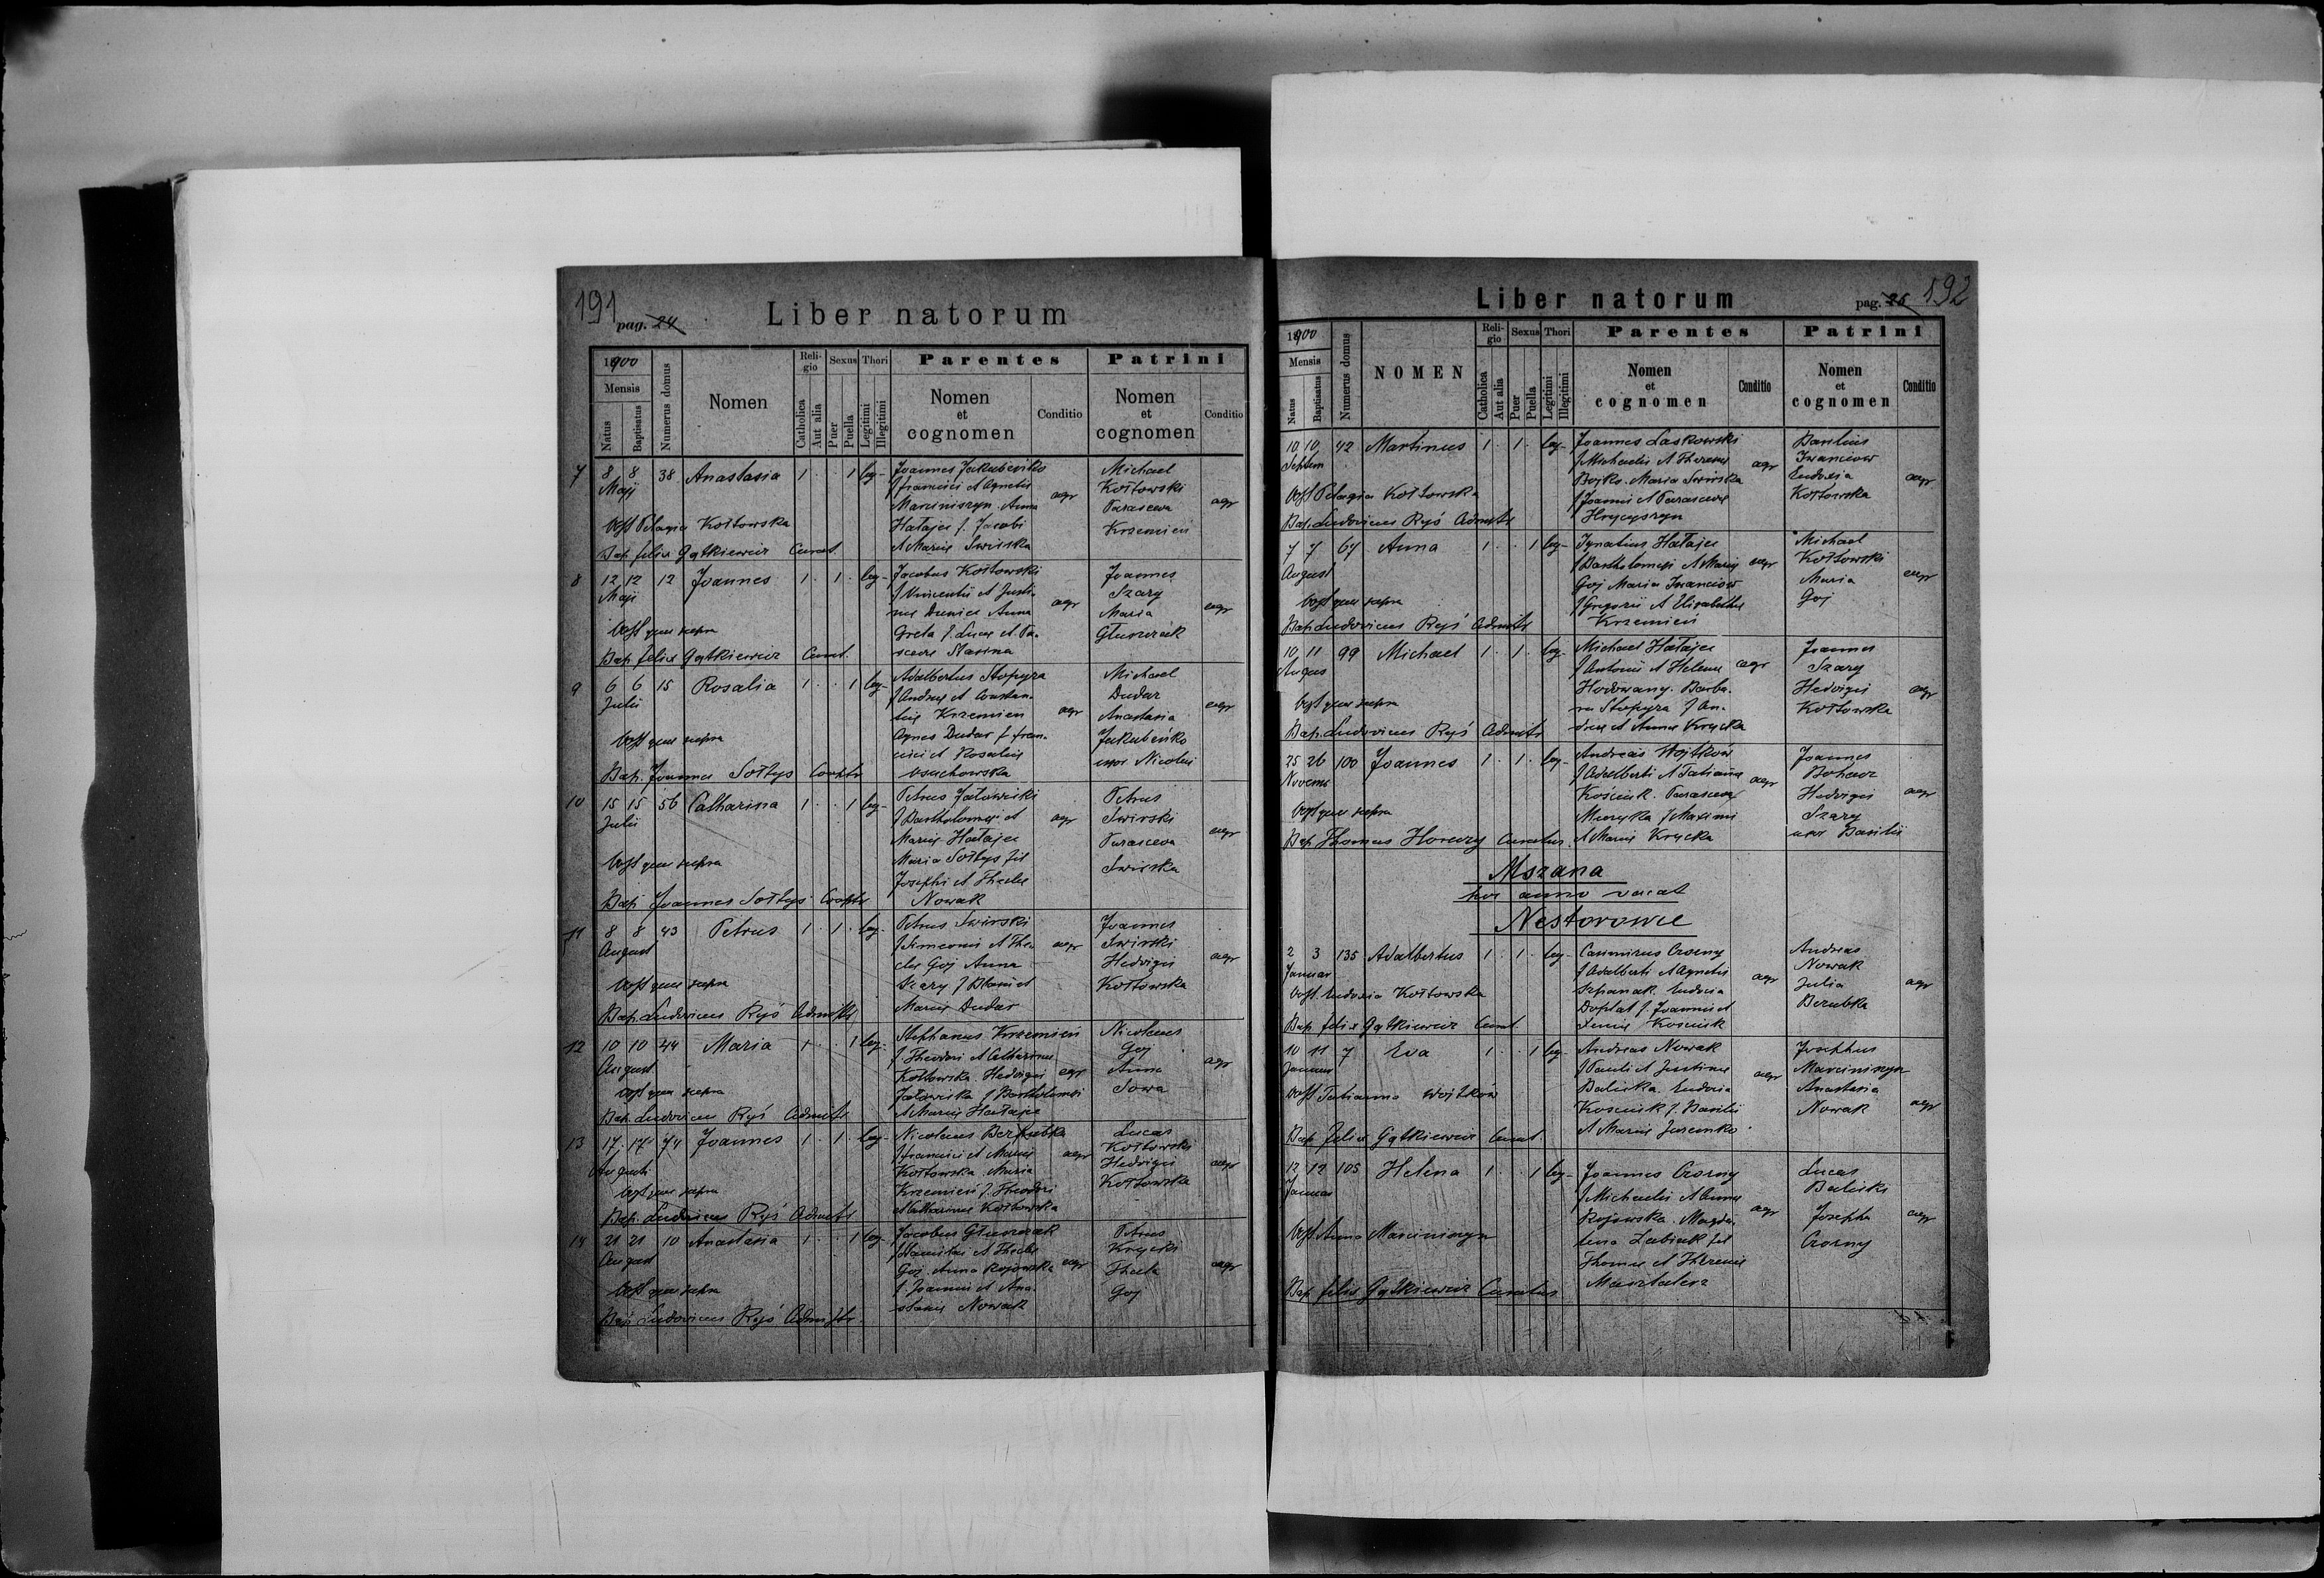 191
pag. 24
Liber natorum
1900
Mensis
Natus
Baptisatus
Numerus domus
Nomen
Religio
Catholica
Aut alia
Sexus
Puer
Puella
Thori
Legitimi
Illegitimi
Parentes
Nomen
et
cognomen
Conditio
Patrini
Nomen
et
cognomen
Conditio
7 8 8 38 Anastasia 1 1 leg-
Maji
Joannes Jakubeńko
f Francisci et Agnetis
Marciniszyn. Anna
Hałajce f. Jacobi
et Mariae Swirska
agr
Michael
Kołtowski
Parasceva
Krzemień
agr
Obst Pelagia Kołtowska
Bap. Felix Gątkiewicz Curat.
8 12 12 12 Joannes 1 1 leg-
Maji
Jacobus Kołtowski
f Vincentii et Justi-
nae Dunice Anna
Greta f. Lucae et Pa-
agr
Joannes
Szary
Maria
Głuszczak
agr
Obst quae supra
Bap. Felix Gątkiewicz Curat.
9 6 6 15 Rosalia 1 1 leg-
Julii
Adalbertus Stopyra
f Andreae et Constan-
tiae Krzemien
Agnes Dudar f Fran-
cisci et Rosaliae
agr
Michael
Dudar
Anastasia
Jakubeńko
uxor Nicolai
agr
Obst quae supra
Bap. Joannes Sołtys Cooptr
10 15 15 56 Catharina 1 1 leg-
Julii
Petrus
f Bartholomei et
Mariae Hałajce
Maria Sołtys fil
Josephi et Theclae
Nowak
agr
Petrus
Swirski
Parasceva
Swirska
agr
Obst quae supra
Bap. Joannes Sołtys Cooptr
11 8 8 43 Petrus 1 1 leg-
August
Petrus Swirski
f Simeonis et The-
clae Goj Anna
Szary f Danielis et
Mariae Dudar
agr
Joannes
Swirski
Hedvigis
Kołtowska
agr
Obst quae supra
Bap. Ludovicus Ryś Admstr
12 10 10 44 Maria 1 1 leg-
August
Stephanus Krzemień
f Theodori et Catharinae
Kołtowska. Hedvigis
f Bartholomei
et Mariae Hałajce
agr
Nicolaus
Goj
Anna
Sowa
agr
Obst quae supra
Bap. Ludovicus Ryś Admstr
13 17 17 74 Joannes 1 1 leg-
Augusti
Nicolaus Berzubka
f Francisci et Mariae
Kołtowska. Maria
Krzemień f. Theodori
et Catharinae Kołtowska
agr
Lucas
Kołtowski
Hedvigis
Kołtowska
agr
Obst quae supra
Bap. Ludovicus Ryś Admstr
14 21 21 10 Anastasia 1 1 leg-
August
Jacobus Głuszczak
f Danielis et Theclae
Goj. Anna Rojowska
f. Joannis et Ana-
stasiae Nowak
agr
Petrus
Krycki
Thecla
Goj
agr
Obst quae supra
Bap. Ludovicus Ryś Admstr.
Liber natorum
pag. 25 192
1900
Mensis
Natus
Baptisatus
Numerus domus
NOMEN
Religio
Catholica
Aut alia
Sexus
Puer
Puella
Thori
Legitimi
Illegitimi
Parentes
Nomen
et
cognomen
Conditio
Patrini
Nomen
et
cognomen
Conditio
10 10 42 Martinus 1 1 leg-
Septem
Joannes Laskowski
f Michaelis et Theresiae
Bojko. Maria Swirska
f Joannis et Parascevae
Hrycyszyn
agr
Basilius
Iwanciow
Eudoxia
Kołtowska
agr
Obst Pelagia Kołtowska
Bap. Ludovicus Ryś Admstr
7 7 67 Anna 1 1 leg-
August
Ignatius Hałajce
f Bartholomei et Mariae
Goj Maria Iwanciow
f Gregorii et Elisabethae
Krzemień
agr
Michael
Kołtowski
Maria
Goj
agr
Obst quae supra
Bap. Ludovicus Ryś Admstr
10 11 99 Michael 1 1 leg-
Augus
Michael Hałajce
f Antonii et Helenae
Hodowany. Barba-
ra Stopyra f An-
dreae et Annae Krycka
agr
Joannes
Szary
Hedvigis
Kołtowska
agr
Obst quae supra
Bap. Ludovicus Ryś Admstr
25 26 100 Joannes 1 1 leg-
Novemb
Andreas Wojtków
f Adalberti et Tatianna
Kościuk. Parasceva
Muzyka f Maximi
et Mariae Krycka
agr
Joannes
Bohacz
Hedvigis
Szary
uxor Basilii
agr
Obst quae supra
Bap. Thomas Horwzy Curatus.
Mszana
hoc anno vacat
Nestorowce
2 3 135 Adalbertus 1 1 leg-
Januar
Casimirus Czorny
f Adalberti et Agnetis
Szpanak. Eudocia
Doplat f. Joannis et
Xeniae Kosciuk
agr
Andreas
Nowak
Julia
Berubka
agr
Obst. Eudoxia Kołtowska
Bap. Felix Gątkiewicz Curat.
10 11 7 Eva 1 1 leg-
Januar
Andreas Nowak
f Pauli et Justinae
Balicka. Eudocia
Kosciuk f. Basilii
et Mariae Jaremko.
agr
Josephus
Marciniszyn
Anastasia
Nowak
agr
Obst Tatianna Wojtków
Bap. Felix Gątkiewicz Curat.
12 12 105 Helena 1 1 leg-
Januar
Joannes Czorny
f Michaelis et Annae
Rojowska. Magda-
lena Zubiak fil
Thomae et Theresiae
Masztalerz
agr
Lucas
Balicki
Josepha
Czorny
agr
Obst. Anna Marciniszyn
Bap. Felix Gątkiewicz Curatus